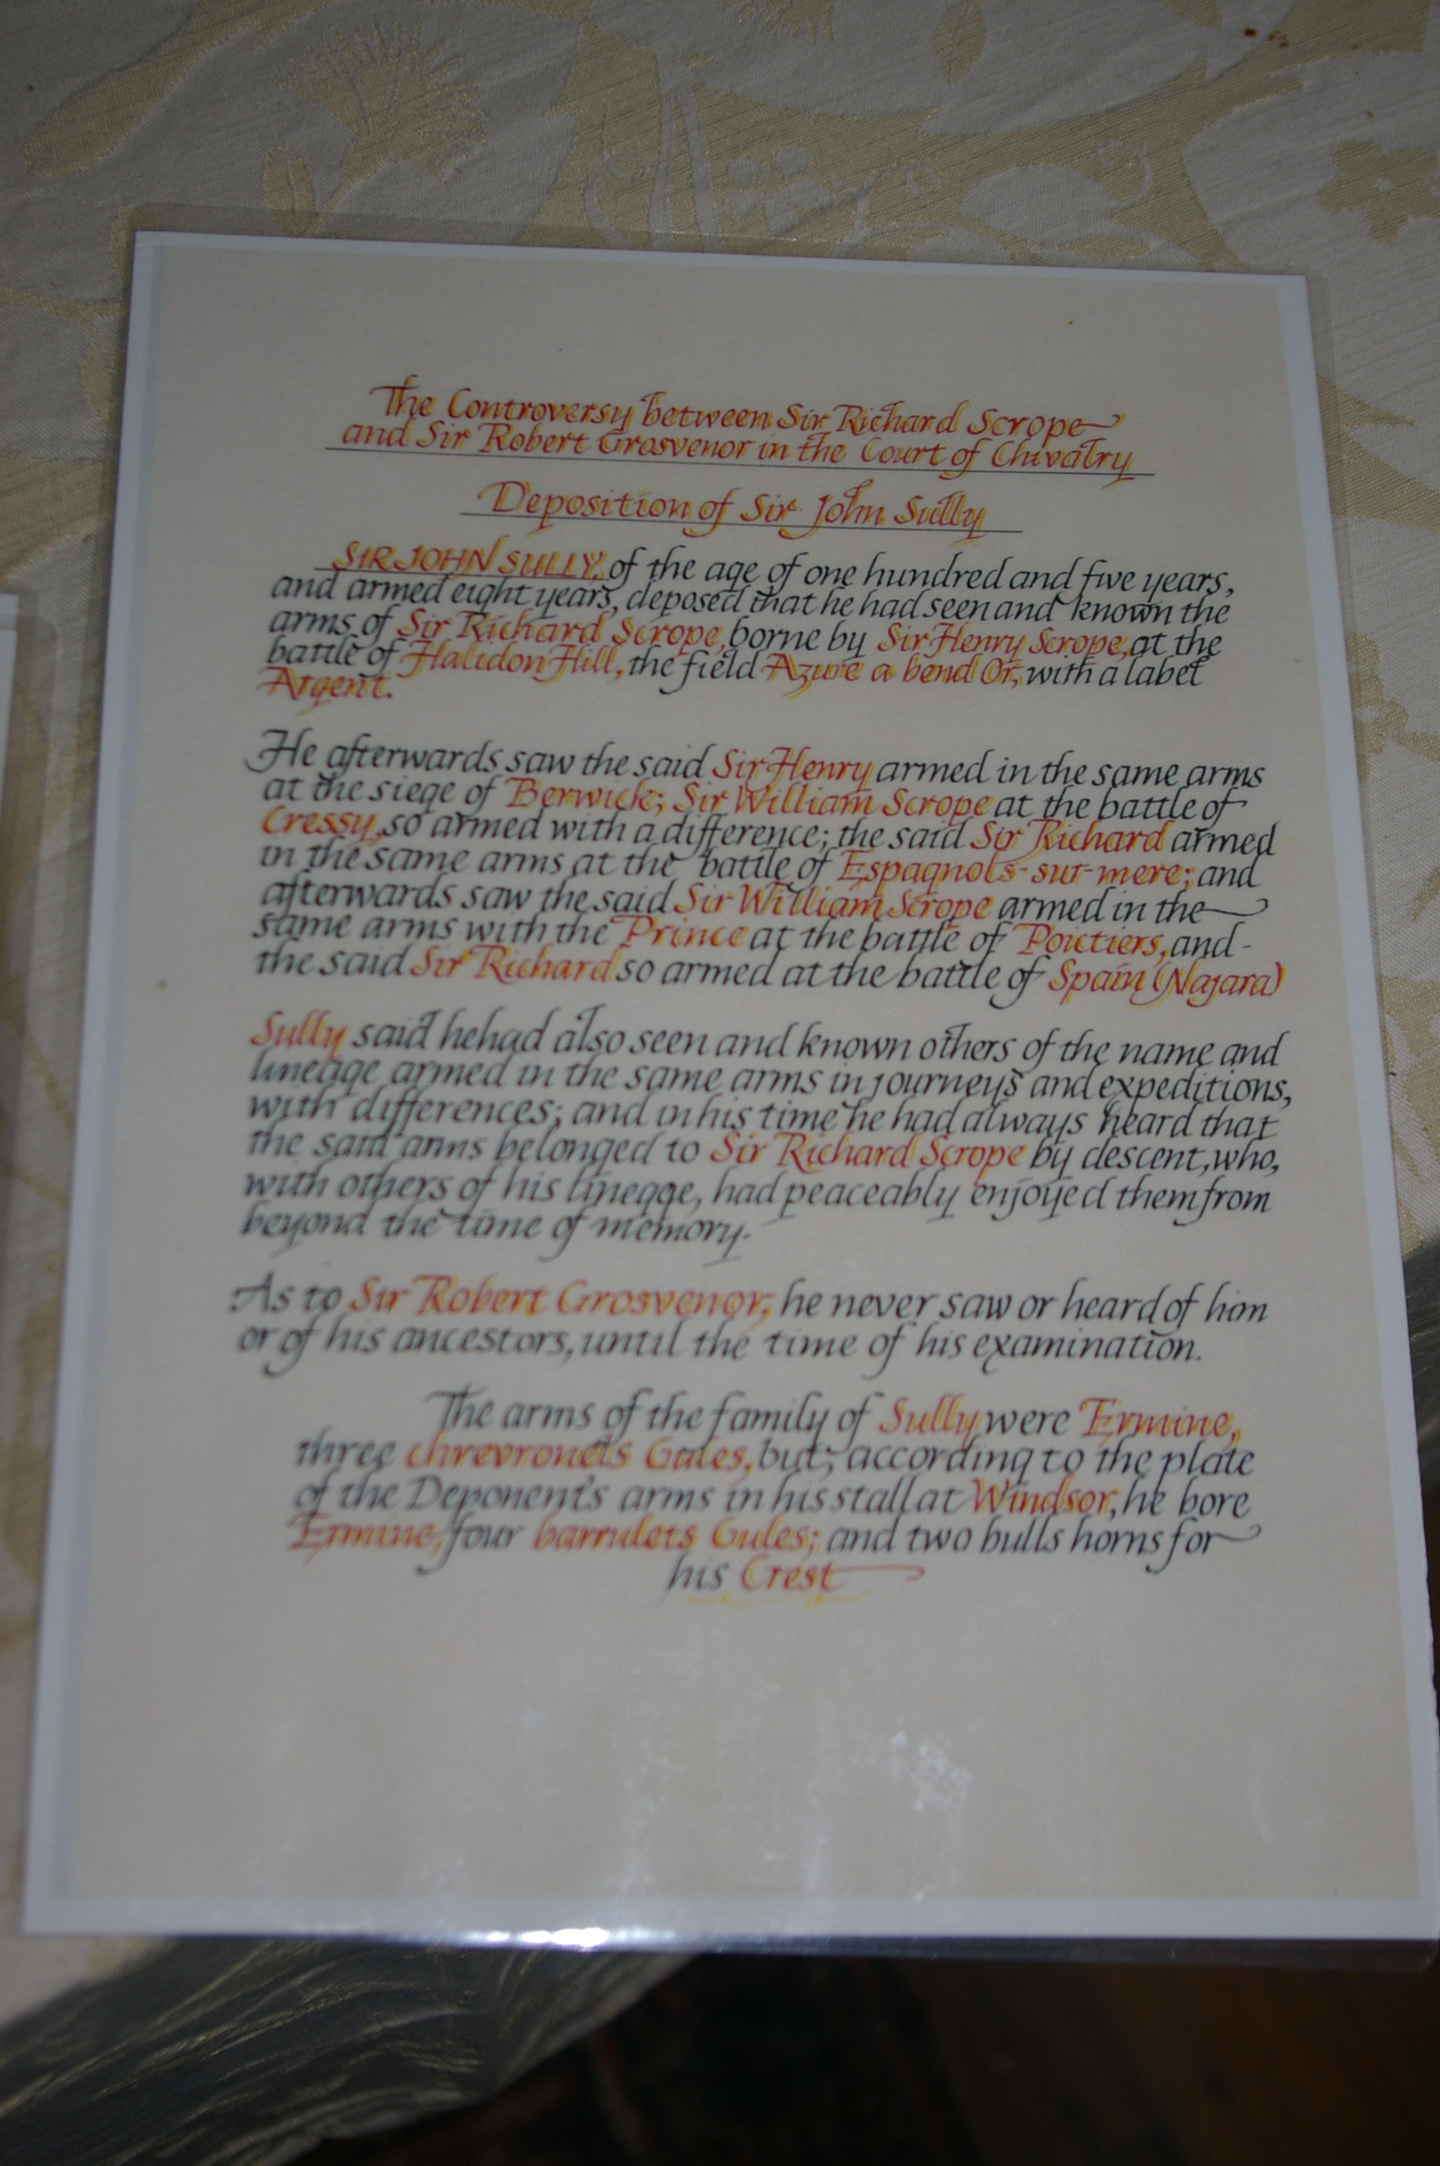 The Controversy between Sir Richard Scrope
and Sir Robert Grosvenor in the Court of Chivalry
Deposition of Sir John Sully
SIR JOHN SULLY, of the age of one hundred and five years,
and armed eight years, deposed that he had seen and known the
arms of Sir Richard Scrope, borne by Sir Henry Scrope, at the
battle of Halidon Hill, the field Azure a bend Or, with a label
Argent.
He afterwards saw the said Sir Henry armed in the same arms
at the siege of Berwick; Sir William Scrope at the battle of
Cressy, so armed with a difference; the said Sir Richard armed
in the same arms at the battle of Espagnols-sur-mere; and
afterwards saw the said Sir William Scrope armed in the
same arms with the Prince at the battle of Poictiers, and -
the said Sir Richard so armed at the battle of Spain (Najara)
Sully said he had also seen and known others of the name and
lineage armed in the same arms in journeys and expeditions,
with differences; and in his time he had always heard that
the said arms belonged to Sir Richard Scrope by descent, who,
with others of his lineage, had peaceably enjoyed them from
beyond the time of memory.
As to Sir Robert Grosvenor, he never saw or heard of him
or of his ancestors, until the time of his examination.
The arms of the family of Sully were Ermine,
three chrevronels Gules, but, according to the plate
of the Deponent's arms in his stall at Windsor, he bore
Ermine, four barrulets Gules; and two bulls horns for
his Crest